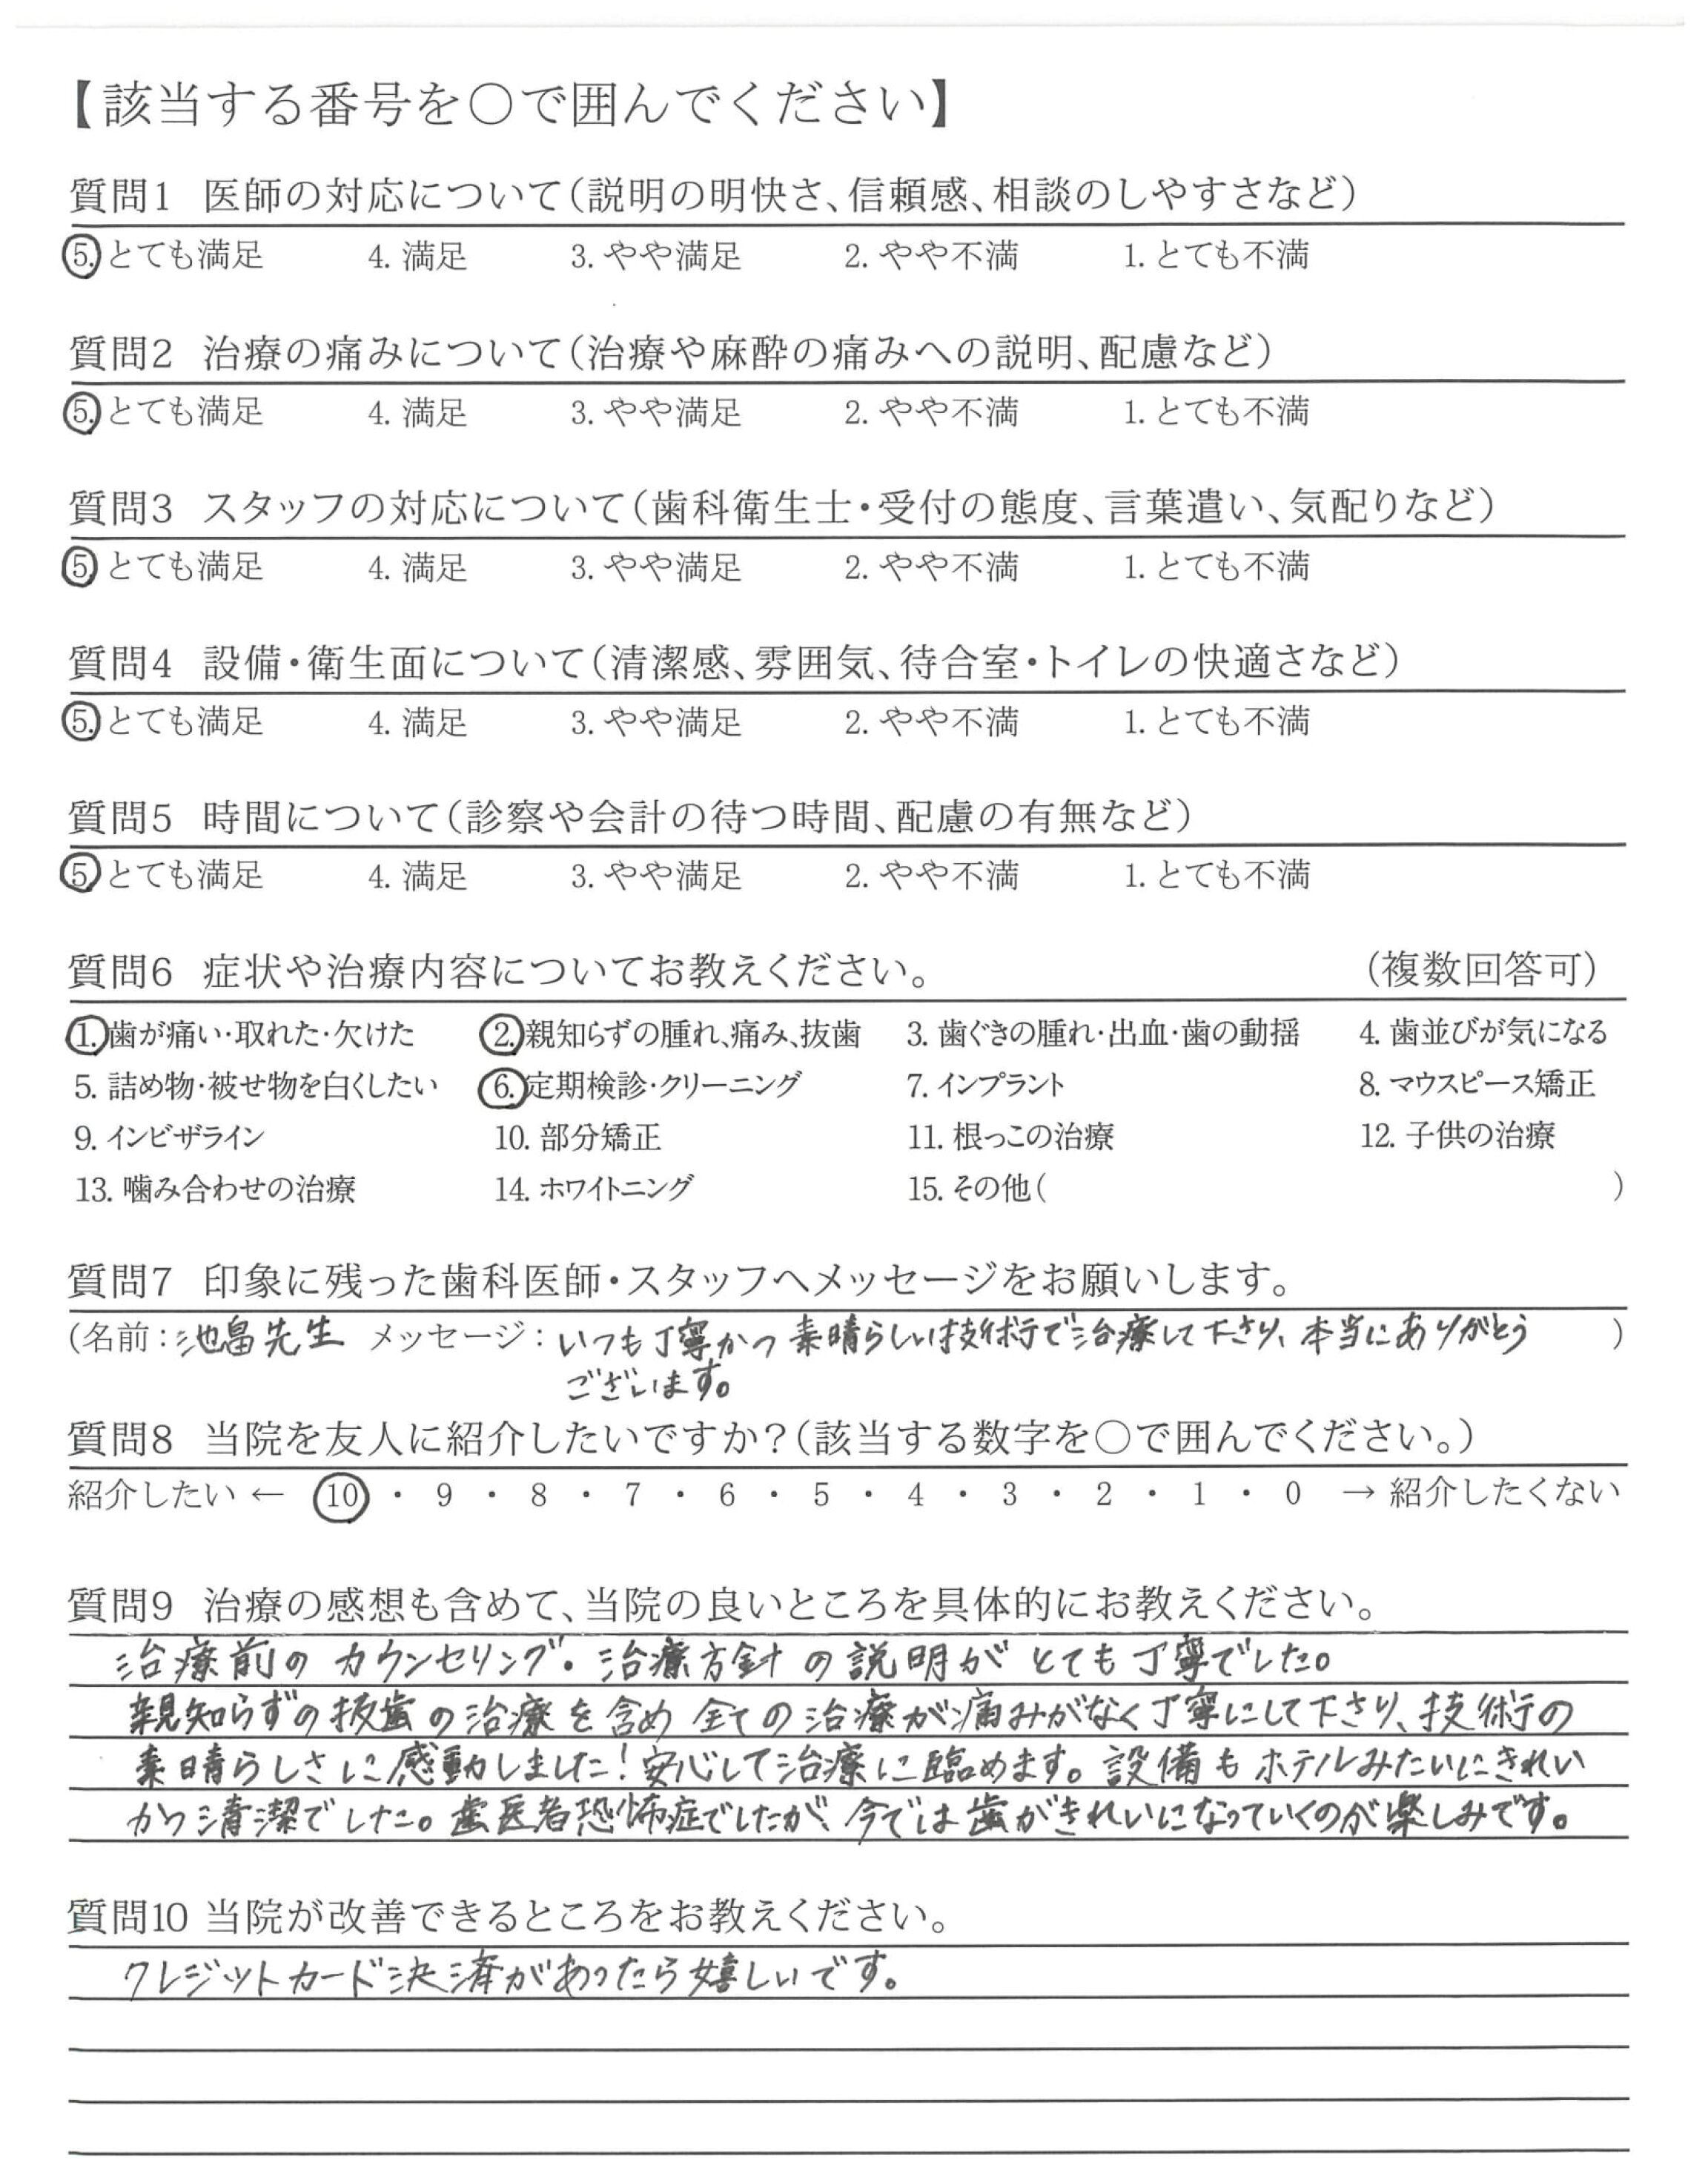 【該当する番号を〇で囲んでください】
質問1 医師の対応について(説明の明快さ、信頼感、相談のしやすさなど)
5.とても満足 4. 満足 3. やや満足 2. やや不満 1. とても不満
質問2 治療の痛みについて(治療や麻酔の痛みへの説明、配慮など)
5.とても満足 4. 満足 3. やや満足 2. やや不満 1. とても不満
質問3 スタッフの対応について(歯科衛生士・受付の態度、言葉遣い、気配りなど)
5.とても満足 4. 満足 3. やや満足 2. やや不満 1. とても不満
質問4 設備・衛生面について(清潔感、雰囲気、待合室・トイレの快適さなど)
5.とても満足 4. 満足 3. やや満足 2. やや不満 1. とても不満
質問5 時間について(診察や会計の待つ時間、配慮の有無など)
5.とても満足 4. 満足 3. やや満足 2. やや不満 1. とても不満
質問6 症状や治療内容についてお教えください。 (複数回答可)
1.歯が痛い・取れた・欠けた 2.親知らずの腫れ、痛み、抜歯 3. 歯ぐきの腫れ・出血・歯の動揺 4. 歯並びが気になる
5. 詰め物・被せ物を白くしたい 6.定期検診・クリーニング 7. インプラント 8. マウスピース矯正
9. インビザライン 10. 部分矯正 11. 根っこの治療 12. 子供の治療
13. 噛み合わせの治療 14. ホワイトニング 15. その他( )
質問7 印象に残った歯科医師・スタッフへメッセージをお願いします。
(名前：池畠先生 メッセージ：いつも丁寧かつ素晴らしい技術で治療して下さり、本当にありがとう )
ございます。
質問8 当院を友人に紹介したいですか?(該当する数字を〇で囲んでください。)
紹介したい ← 10 ・ 9 ・ 8 ・ 7 ・ 6 ・ 5 ・ 4 ・ 3 ・ 2 ・ 1 ・ 0 → 紹介したくない
質問9 治療の感想も含めて、当院の良いところを具体的にお教えください。
治療前のカウンセリング・治療方針の説明がとても丁寧でした。
親知らずの抜歯の治療を含め全ての治療が痛みがなく丁寧にして下さり、技術の
素晴らしさに感動しました!安心して治療に臨めます。設備もホテルみたいにきれい
かつ清潔でした。歯医者恐怖症でしたが、今では歯がきれいになっていくのが楽しみです。
質問10 当院が改善できるところをお教えください。
クレジットカード決済があったら嬉しいです。